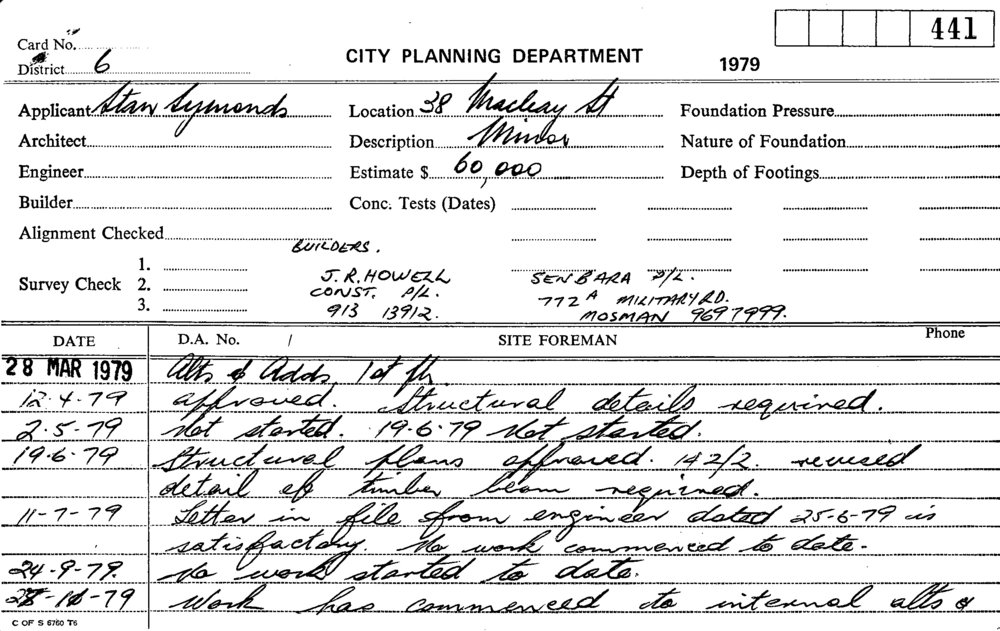 441
Card No.
District 6
CITY PLANNING DEPARTMENT
1979
Applicant Stan Symonds
Location 38 Macleay St
Foundation Pressure
Architect
Description Minor
Nature of Foundation
Engineer
Estimate $ 60,000
Depth of Footings
Builder
Conc. Tests (Dates)
Alignment Checked
BUILDERS.
Survey Check
1.
2.
3.
J.R. HOWELL
CONST. P/L.
913 13912.
SENBARA P/L.
772A MILITARY RD.
MOSMAN 969 7999.
DATE
D.A. No. /
SITE FOREMAN
Phone
28 MAR 1979 Alts & Adds, 1st flr
12.4.79 approved. Structural details required.
2.5.79 Not started. 19.6.79 Not started.
19.6.79 Structural plans approved. 142/2. revised
detail of timber beam required.
11-7-79 Letter in file from engineer dated 25-6-79 is
satisfactory. No work commenced to date.
24-9-79. No work started to date.
-79 Work has commenced to internal alts &
C OF S 6760 T6